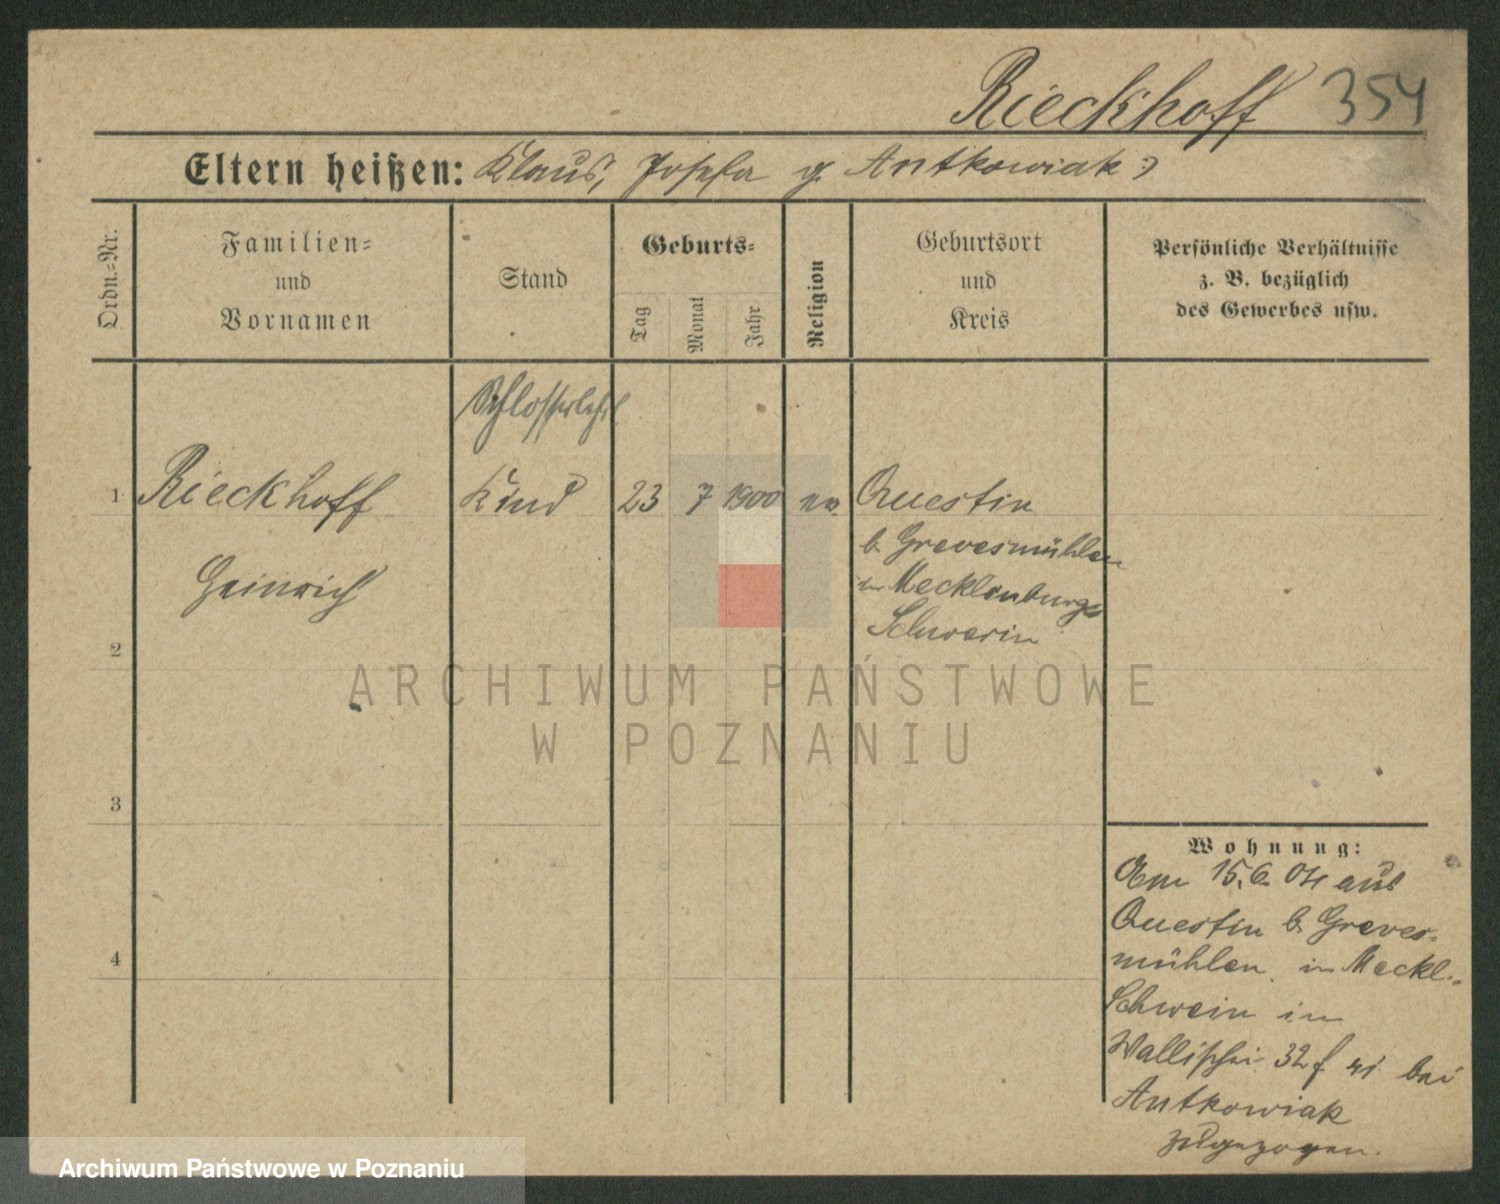 Rieckhoff 354
Eltern heißen: Klaus, Josefa g. Antkowiak
Ordn.-Nr.
Familien-
und
Vornamen
Stand
Geburts-
Tag
Monat
Jahr
Religion
Geburtsort
und
Kreis
Persönliche Verhältnisse
z. B. bezüglich
des Gewerbes usw.
Schlosserlehrl
1 Rieckhoff Kind 23 7 1900 Questin
b. Grevesmühlen
in Mecklenburg-
Schwerin
Heinrich
2
3
4
Wohnung:
Am 15.6.04 aus
Questin b. Greves-
mühlen in Meckl.-
Schwerin in
Wallischei 32 bei
Antkowiak
zugezogen.
ARCHIWUM PAŃSTWOWE
W POZNANIU
Archiwum Państwowe w Poznaniu